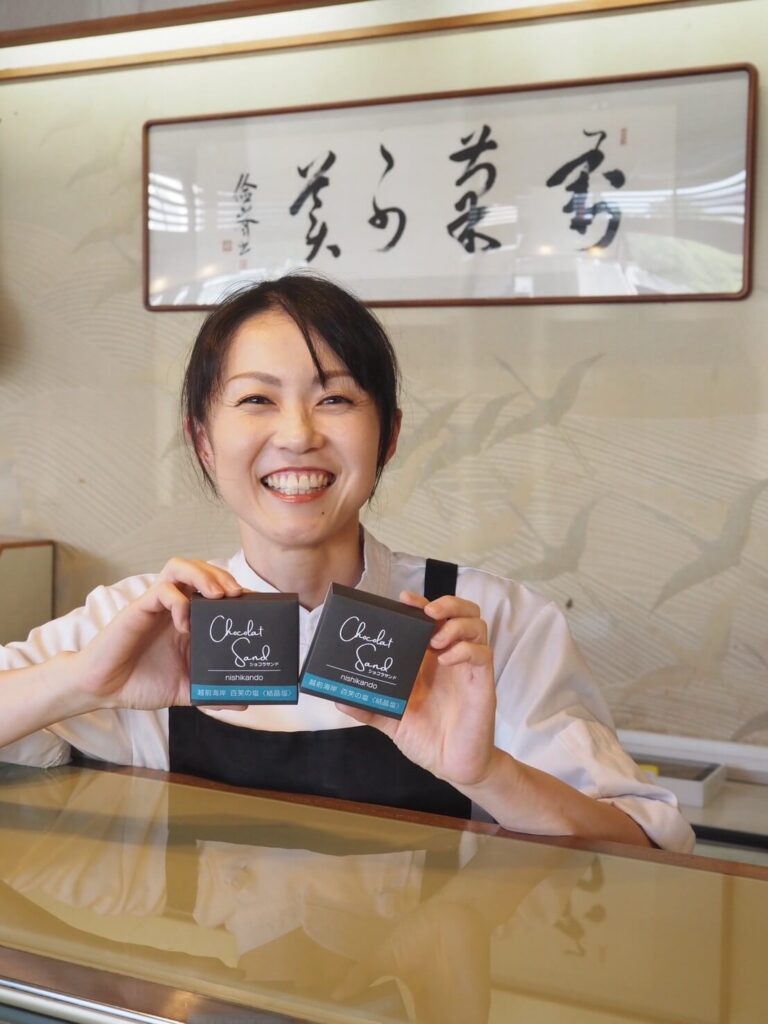 Chocolat
Sand
ショコラサンド
nishikando
越前海岸 百笑の塩〈結晶塩〉
Chocolat
Sand
ショコラサンド
nishikando
越前海岸 百笑の塩〈結晶塩〉